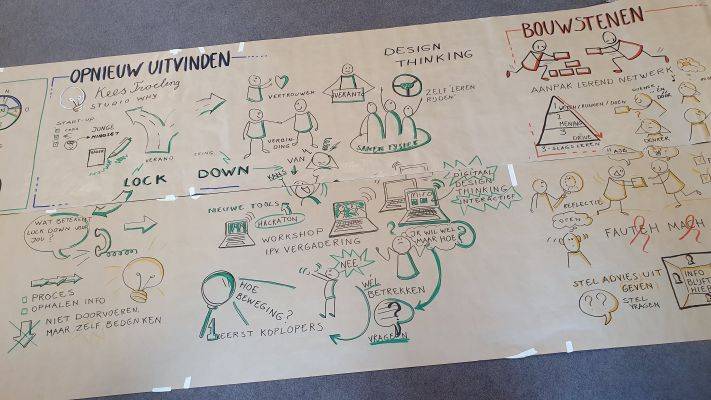 OPNIEUW UITVINDEN
STUDIO WHY
START-UP
JONGE
MINDSET
VERAND
ERING
LOCK
DOWN
WAT BETEKENT
LOCK DOWN VOOR
JOU?
PROCES
OPHALEN INFO
NIET DOORVOEREN,
MAAR ZELF BEDENKEN
DESIGN
THINKING
VERTROUWEN
ZELF 'LEREN
RIJDEN'
VERBIN-
DING
SAMEN
VAN
NIEUWE TOOLS
HACKATON
WORKSHOP
VERGADERING
DIGITAAL
DESIGN
THINKING
INTERACTIEF
IK WIL WEL
MAAR HOE?
NEE
WÉL
BETREKKEN
VRAGEN
HOE
BEWEGING?
EERST KOPLOPERS
BOUWSTENEN
AANPAK LEREND NETWERK
1
2
MENING
3
DRIVE
3-SLAGSLEREN
DENKER
REFLECTIE
OPEN
STEL ADVIES UIT
GEVEN!
STEL
VRAGEN
INFO
BLIJFT
HIER